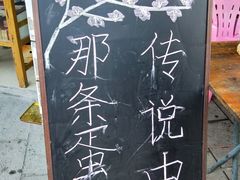 传说中
那条蛋